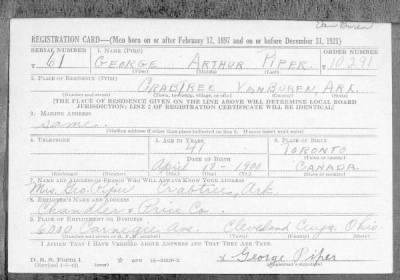 Van Buren
REGISTRATION CARD—(Men born on or after February 17, 1897 and on or before December 31, 1921)
SERIAL NUMBER 1. NAME (Print) ORDER NUMBER
61 GEORGE ARTHUR PIPER 10,291
(First) (Middle) (Last)
2. PLACE OF RESIDENCE (Print)
CRABTREE VAN BUREN, ARK.
(Number and street) (Town, township, village, or city) (County) (State)
[THE PLACE OF RESIDENCE GIVEN ON THE LINE ABOVE WILL DETERMINE LOCAL BOARD
JURISDICTION; LINE 2 OF REGISTRATION CERTIFICATE WILL BE IDENTICAL]
3. MAILING ADDRESS
Same
[Mailing address if other than place indicated on line 2. If same insert word same]
4. TELEPHONE 5. AGE IN YEARS 6. PLACE OF BIRTH
41 TORONTO
DATE OF BIRTH (Town or county)
April 18 - 1900 CANADA
(Exchange) (Number) (Mo.) (Day) (Yr.) (State or country)
7. NAME AND ADDRESS OF PERSON WHO WILL ALWAYS KNOW YOUR ADDRESS
Mrs. Geo. Piper Crabtree, Ark
8. EMPLOYER'S NAME AND ADDRESS
Chandler & Price Co.
9. PLACE OF EMPLOYMENT OR BUSINESS
6000 Carnegie Ave. Cleveland Ohio
(Number and street or R. F. D. number) (Town) (County) (State)
I AFFIRM THAT I HAVE VERIFIED ABOVE ANSWERS AND THAT THEY ARE TRUE.
D. S. S. Form 1 George Piper
(Revised 1-5-42) (over) (Registrant's signature)